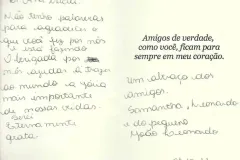 Não tenho palavras
para agradecer o
que você fez por nós
e está fazendo
Obrigada por
nós ajudar a trazer
ao mundo a jóia
mais importante
de nossas vidas.
Serei
Eternamente
grata.
Amigos de verdade,
como você, ficam para
sempre em meu coração.
um abraço dos
amigos.
Samantha, Leonardo
e do pequeno
João Leonardo